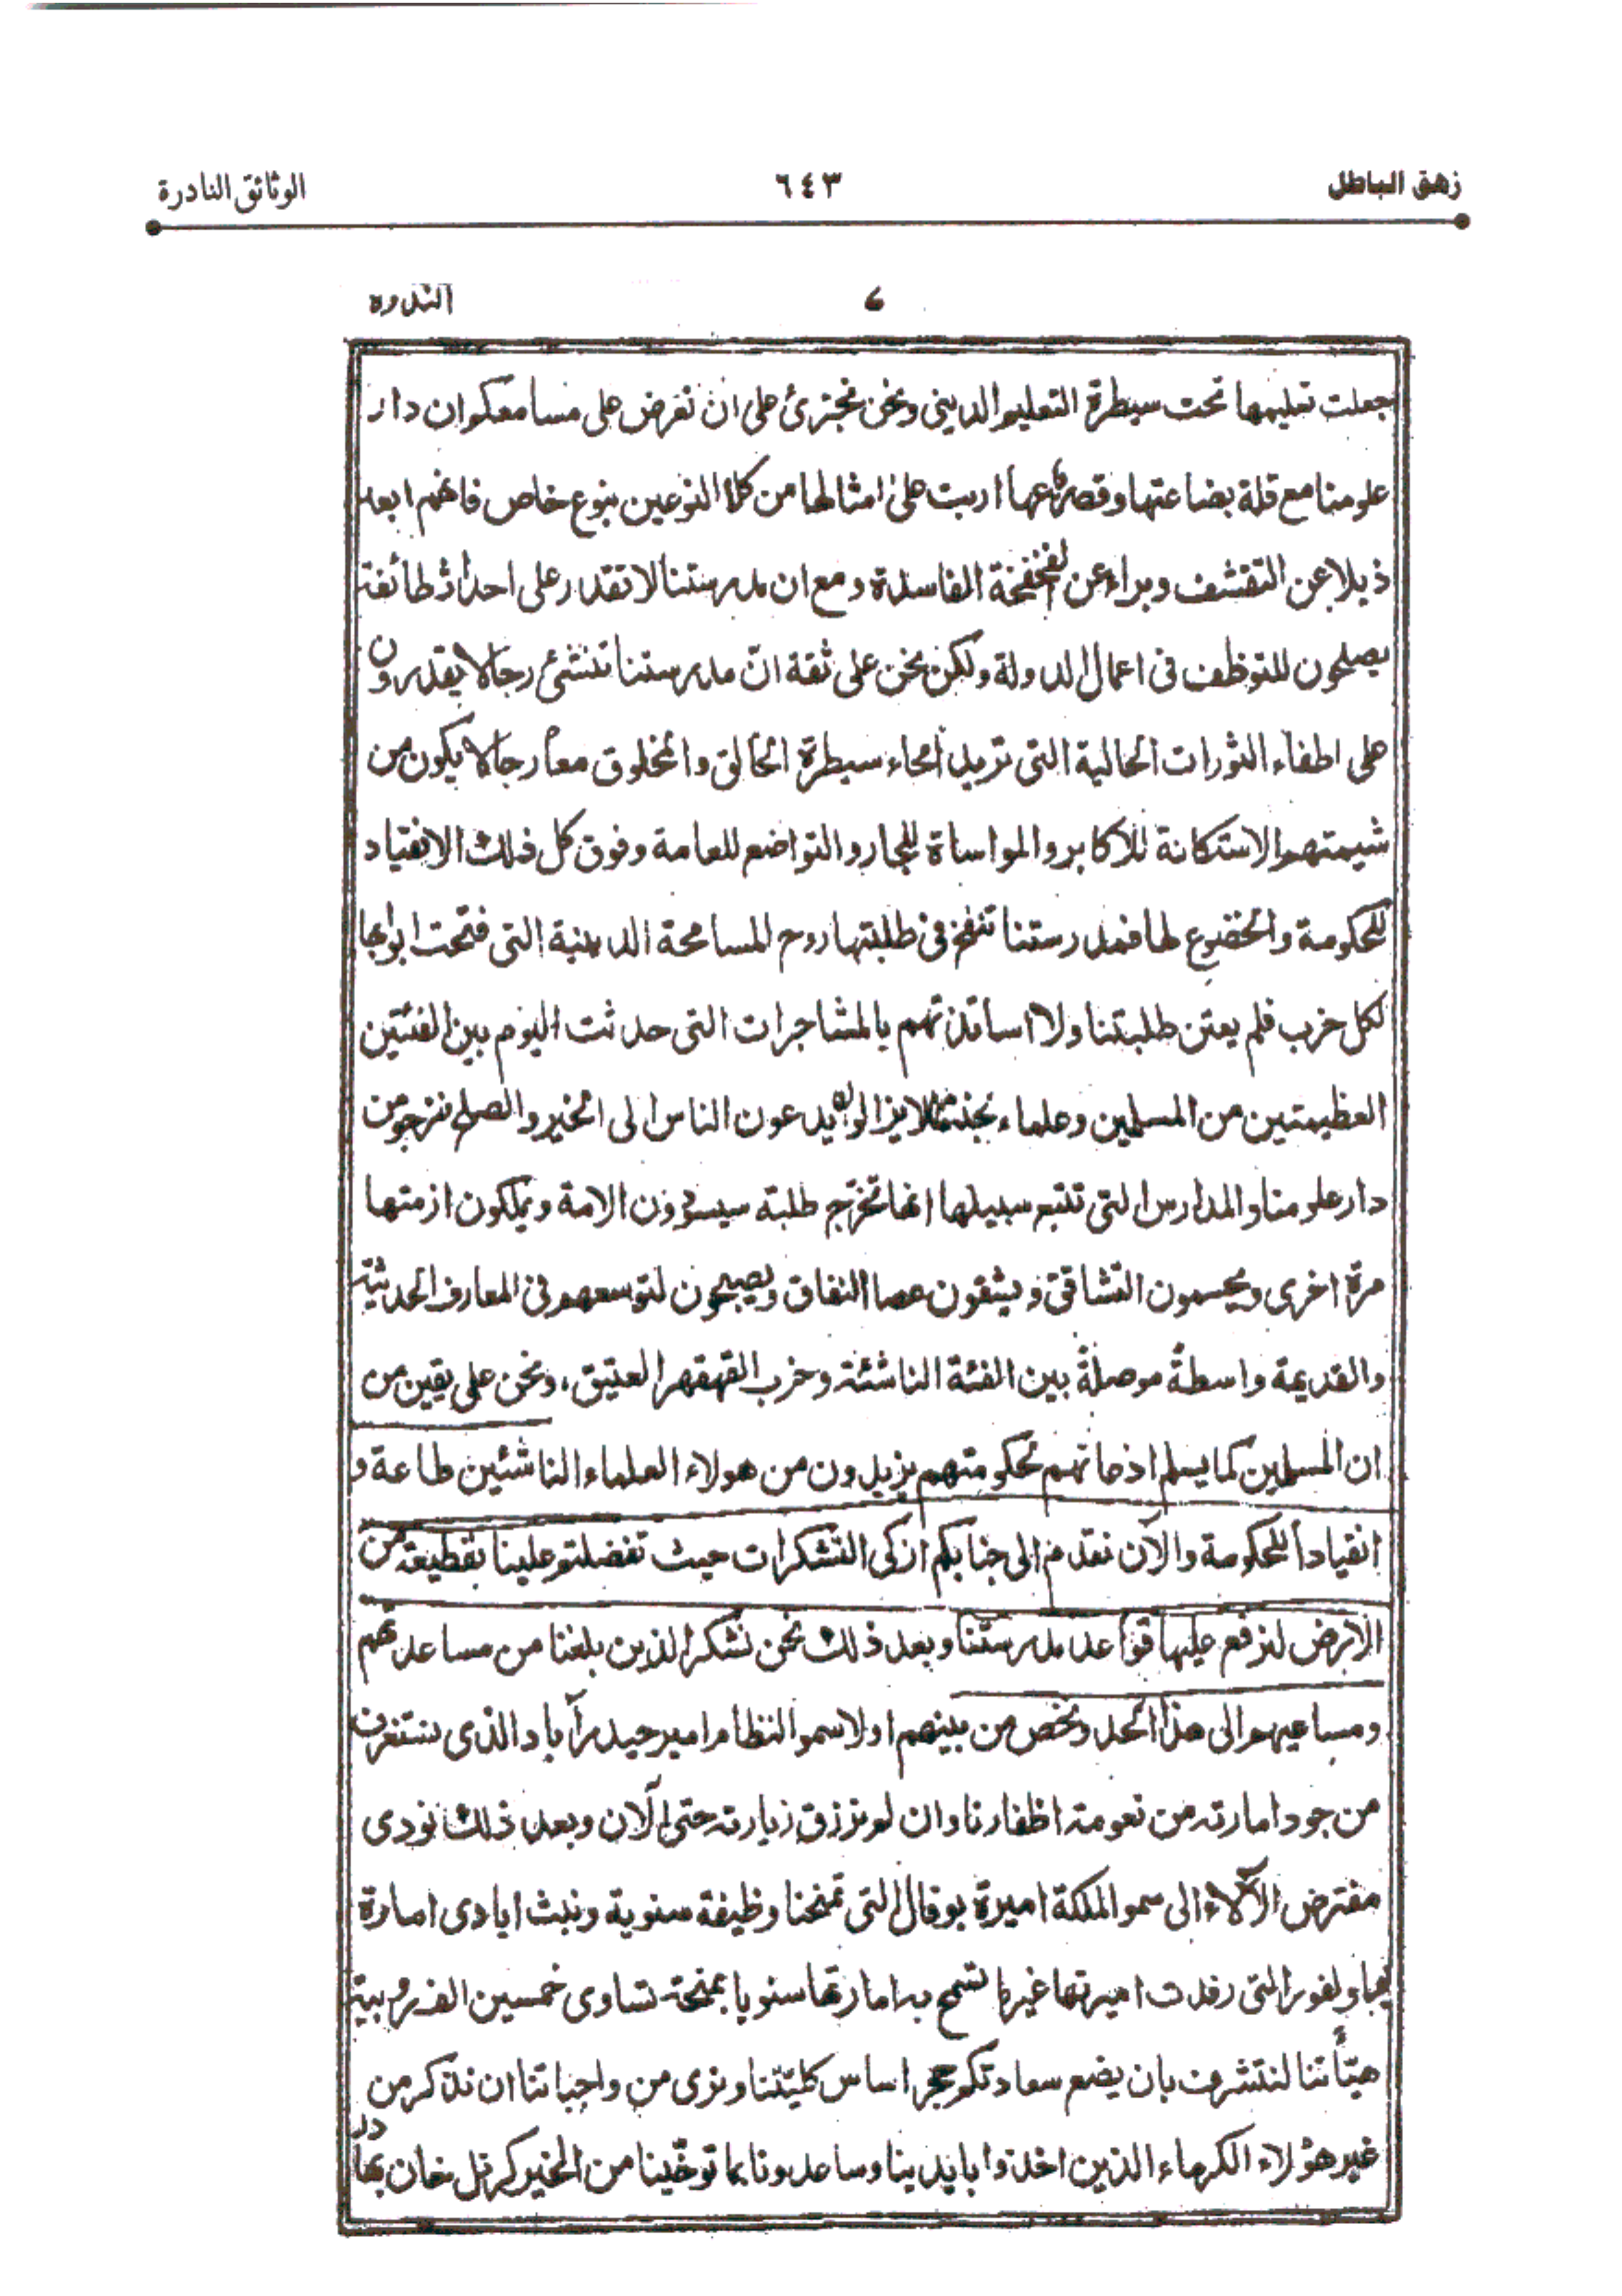 زهق الباطل
٦٤٣
الوثائق النادرة
الندوه
٧
جعلت تعليمها تحت سيطرة التعليم الديني ونحن نجترئ على ان نعرض على مسامعكم ان دار
علومنا مع قلة بضاعتها وقصر باعها اربت على امثالها من كلا النوعين بنوع خاص فانهم ابعد
ذيلا عن التقشف وبراء عن الفخفخة الفاسدة ومع ان مدرستنا لا تقدر على احداث طائفة
يصلحون للتوظف في اعمال الدولة ولكن نحن على ثقة انّ مدرستنا تنشئ رجالا يقدرون
على اطفاء الثورات الحالية التي تريد امحاء سيطرة الخالق والمخلوق معاً رجالا يكون من
شيمتهم الاستكانة للاكابر والمواساة للجار والتواضع للعامة وفوق كل ذلك الانقياد
للحكومة والخضوع لها فمدرستنا تنفخ في طلبتها روح المسامحة الدينية التي فتحت ابوابها
لكل حزب فلم يعتن طلبتنا ولا اساتذتهم بالمشاجرات التي حدثت اليوم بين الفئتين
العظيمتين من المسلمين وعلماء نجذتنا لا يزالون يدعون الناس الى الخير والصلح فنرجو من
دار علومنا والمدارس التي تتبع سبيلها انها تخرّج طلبته سيسودون الامة ويملكون ازمتها
مرة اخرى ويحسمون التشاقق ويشقون عصا النفاق ويصبحون لتوسعهم في المعارف الحديثة
والقديمة واسطةً موصلةً بين الفئة الناشئة وحزب القهقهر العتيق، ونحن على يقين من
ان المسلمين كما يسلم اذعانهم لحكومتهم يزيدون من هولاء العلماء الناشئين طاعة و
انقياداً للحكومة والآن نقدم الى جنابكم ازكى التشكرات حيث تفضلتم علينا بقطيعة من
الارض لنرفع عليها قواعد مدرستنا وبعد ذلك نحن نشكر الذين بلغنا من مساعدتهم
ومساعيهم الى هذا الحد ونخص من بينهم اولا سمو النظام امير حيدرآباد الذى نستغرف
من جود امارته من نعومة اظفارنا وان لم نرزق زيارته حتى الآن وبعد ذلك نودى
مفترض الآلاء الى سمو الملكة اميرة بوفال التى تمنحنا وظيفة سنوية ونبث ايادى امارة
بهاولفور التى رفدت اميرتها غير ما تسمح به امارتها سنويا بمنحة تساوى خمسين الف روبية
هيّأتنا لنتشرف بان يضع سعادتكم حجر اساس كليتنا ونرى من واجباتنا ان نذكر من
غير هؤلاء الكرماء الذين اخذوا بايدينا وساعدونا بما توخّينا من الخير كرنل خان بهادر